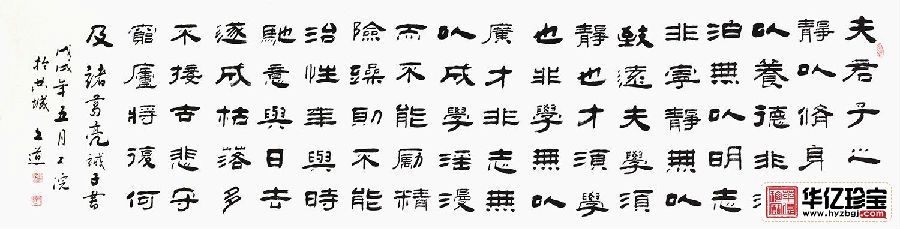 夫君子之
静以脩身
以養德非
泊無以明志
非寧静無以
致遠夫學須
静也才須學
也非學無以
廣才非志無
以成學淫漫
而不能勵精
險躁則不能
治性年與時
馳意與日去
遂成枯落多
不接世悲守
窮廬將復何
及
諸葛亮誡子書
戊戌年五月上浣
华亿珍宝
www.hyzbgj.com